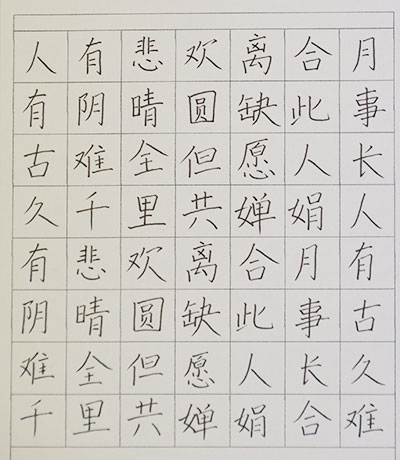 人有悲欢离合月
有阴晴圆缺此事
古难全但愿人长
久千里共婵娟人
有悲欢离合月有
阴晴圆缺此事古
难全但愿人长久
千里共婵娟合难